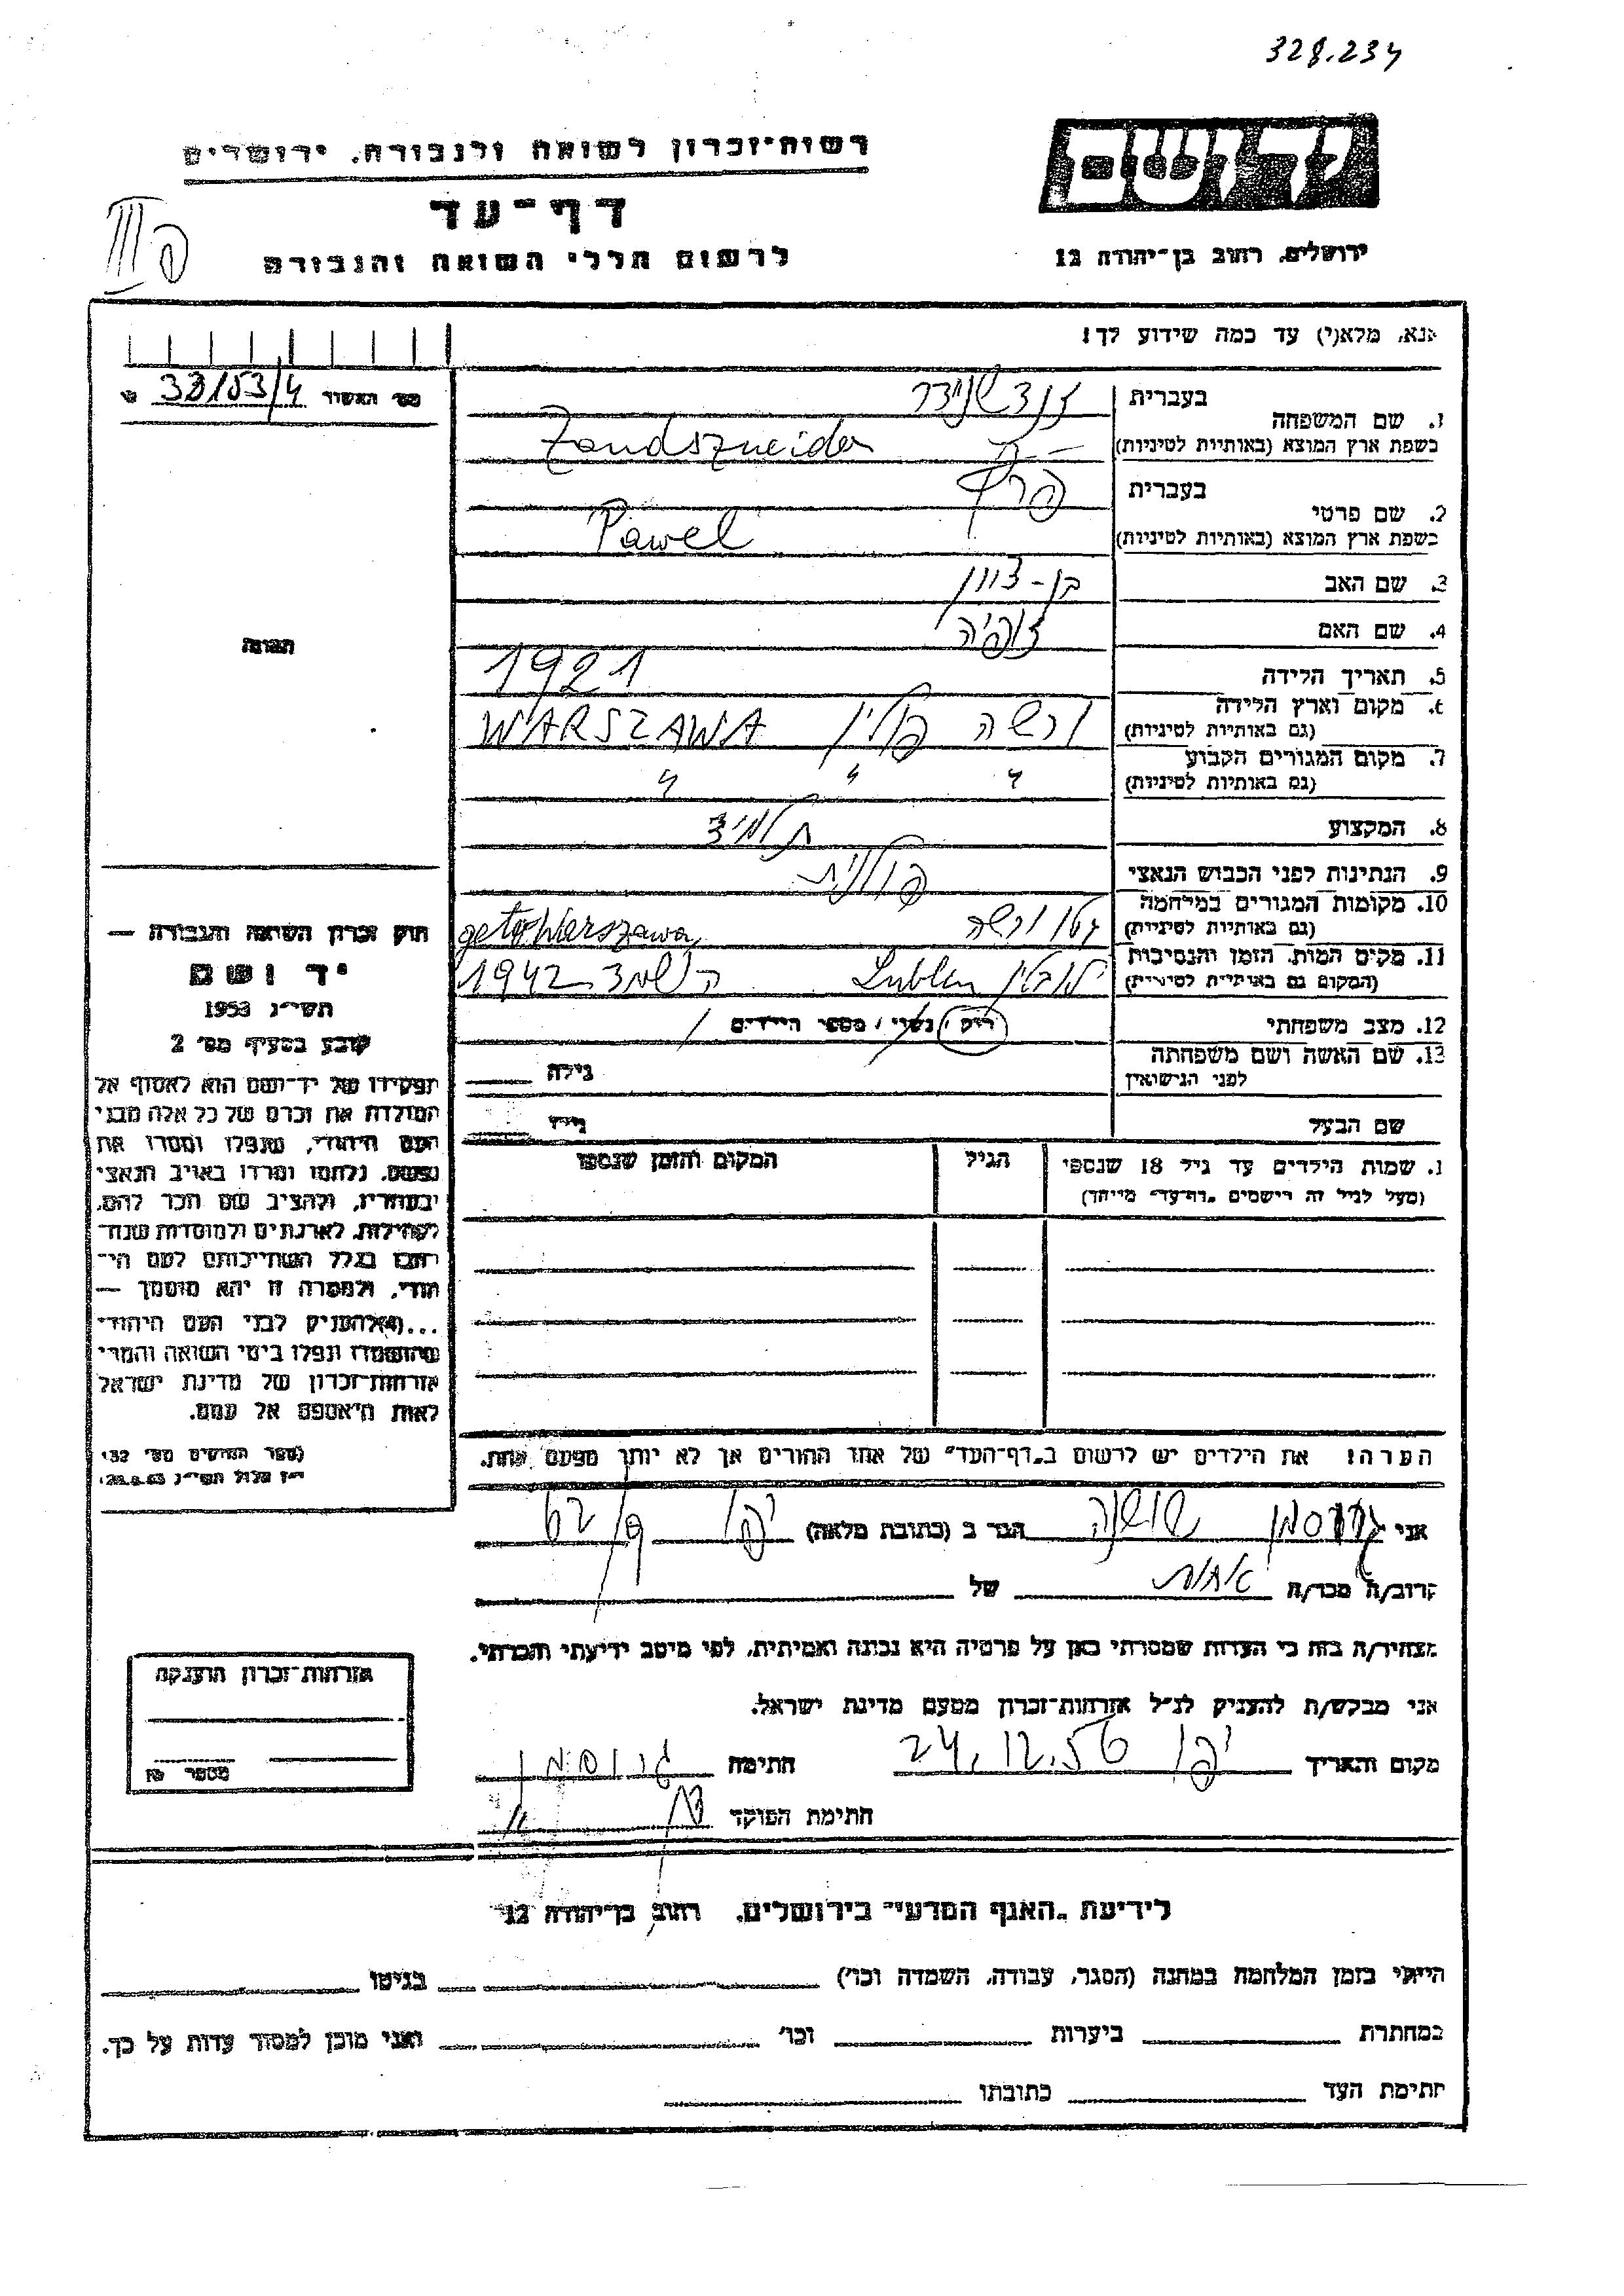 328.234
רשות־זכרון לשואה ולגבורה, ירושלים
דף־עד
לרשום חללי השואה והגבורה
יד ושם
ירושלים, רחוב בן־יהודה 12
אנא, מלא(י) עד כמה שידוע לך!
מס׳ האשור 33/53/4
1. שם המשפחה
בעברית זנדשניידר
בשפת ארץ המוצא (באותיות לטיניות) Zandszneider
2. שם פרטי
בעברית
בשפת ארץ המוצא (באותיות לטיניות) Pawel
3. שם האב בן-ציון
4. שם האם זופיה
5. תאריך הלידה 1921
6. מקום וארץ הלידה (גם באותיות לטיניות) ורשה פולין WARSZAWA
7. מקום המגורים הקבוע (גם באותיות לטיניות) " " "
8. המקצוע תלמיד
9. הנתינות לפני הכבוש הנאצי פולנית
10. מקומות המגורים במלחמה (גם באותיות לטיניות) גטו ורשה geto Warszawa
11. מקום המות, הזמן והנסיבות (המקום גם באותיות לטיניות) לובלין Lublin 1942
12. מצב משפחתי רוק / נשוי / מספר הילדים
13. שם האשה ושם משפחתה לפני הנישואין גילה
שם הבעל גילו
שמות הילדים עד גיל 18 שנספו הגיל המקום והזמן שנספו
(מעל לגיל זה רושמים „דף־עד״ מיוחד)
הערה! את הילדים יש לרשום ב„דף־העד״ של אחד ההורים אך לא יותר מפעם אחת.
תמונה
חוק זכרון השואה והגבורה —
יד ושם
תשי״ג 1953
קובע בסעיף מס׳ 2
תפקידו של יד־ושם הוא לאסוף אל
המולדת את זכרם של כל אלה מבני
העם היהודי, שנפלו ומסרו את
נפשם, נלחמו ומרדו באויב הנאצי
ובעוזריו, ולהציב שם וזכר להם,
לקהילות, לארגונים ולמוסדות שנח־
רבו בגלל השתייכותם לעם הי־
הודי, ולמטרה זו יהא מוסמך —
...(4)להעניק לבני העם היהודי
שהושמדו ונפלו בימי השואה והמרי
אזרחות־זכרון של מדינת ישראל
לאות היאספם אל עמם.
(ספר החוקים מס׳ 132
י״ז אלול תשי״ג 28.8.53)
אני גרוסמן שושנה הגר ב (כתובת מלאה) יפו
קרוב/ה מכר/ה אחות של
מצהיר/ה בזה כי העדות שמסרתי כאן על פרטיה היא נכונה ואמיתית, לפי מיטב ידיעתי והכרתי.
אני מבקש/ת להעניק לנ״ל אזרחות־זכרון מטעם מדינת ישראל.
מקום והאריך יפו 24.12.56 חתימה גרוסמן
חתימת הפוקד
אזרחות־זכרון הוענקה
מספר
לידיעת „האגף המדעי״ בירושלים, רחוב בן־יהודה 12
הייתי בזמן המלחמה במחנה (הסגר, עבודה, השמדה וכו׳) בגיטו
במחתרת ביערות וכו׳ ואני מוכן למסור עדות על כך.
חתימת העד כתובתו